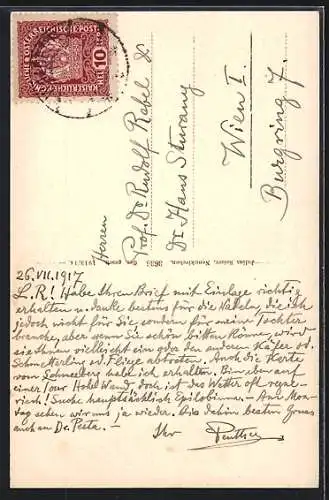 KAISERLICHE KÖN. ÖSTERREICHISCHE POST
10
Herren
Prof. Dr. Rudolf Rebel &
Dr. Hans
Wien I.
Burgring 7.
Julius Seiser, Neunkirchen.
1913/14
26.VII.1917
L. R! Habe Ihren Brief mit Einlage richtig
erhalten u. danke bestens für die Nadeln, die ich
jedoch nicht für Sie sondern für meine Tochter
brauche, aber wenn Sie schön bitten können, wird
sie Ihnen vielleicht ein oder den andern Käfer od.
Schmetterling od. Fliege abtreten! Auch die Karte
vom Schneeberg hab ich erhalten. Bin eben auf
einer Tour Hohe Wand, doch ist das Wetter oft regne-
risch! Suche hauptsächlich – Am Mon-
tag sehen wir uns ja wieder. Bis dahin besten Gruss
auch an Dr.
Ihr